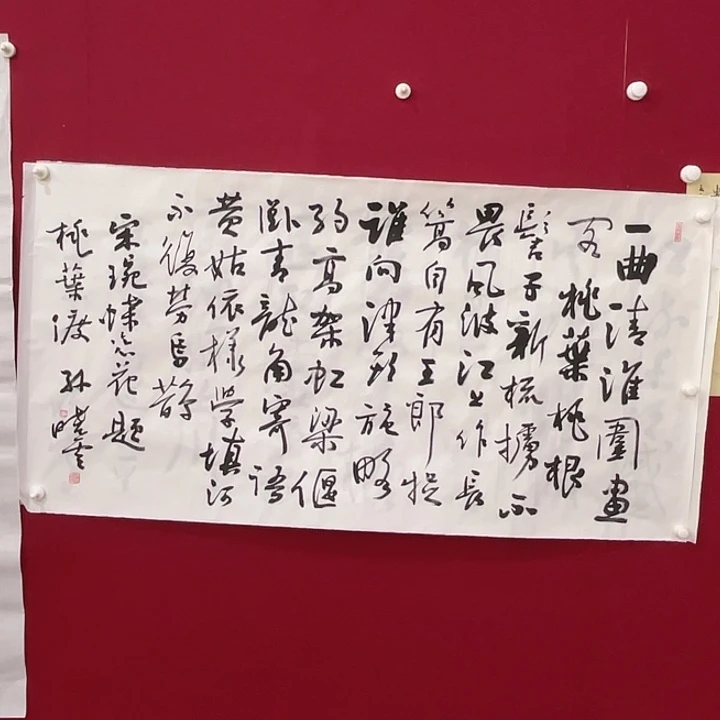 一曲清淮圖畫
桃葉桃根
髻子新梳掠不
畏風波江上作長
篙自有王郎捉
誰向津頭施略
彴高架虹梁偃
卧青龍角寄語
黄姑依樣學填河
不復勞烏鵲
宋琬蝶恋花題
桃葉渡 孙曉雲